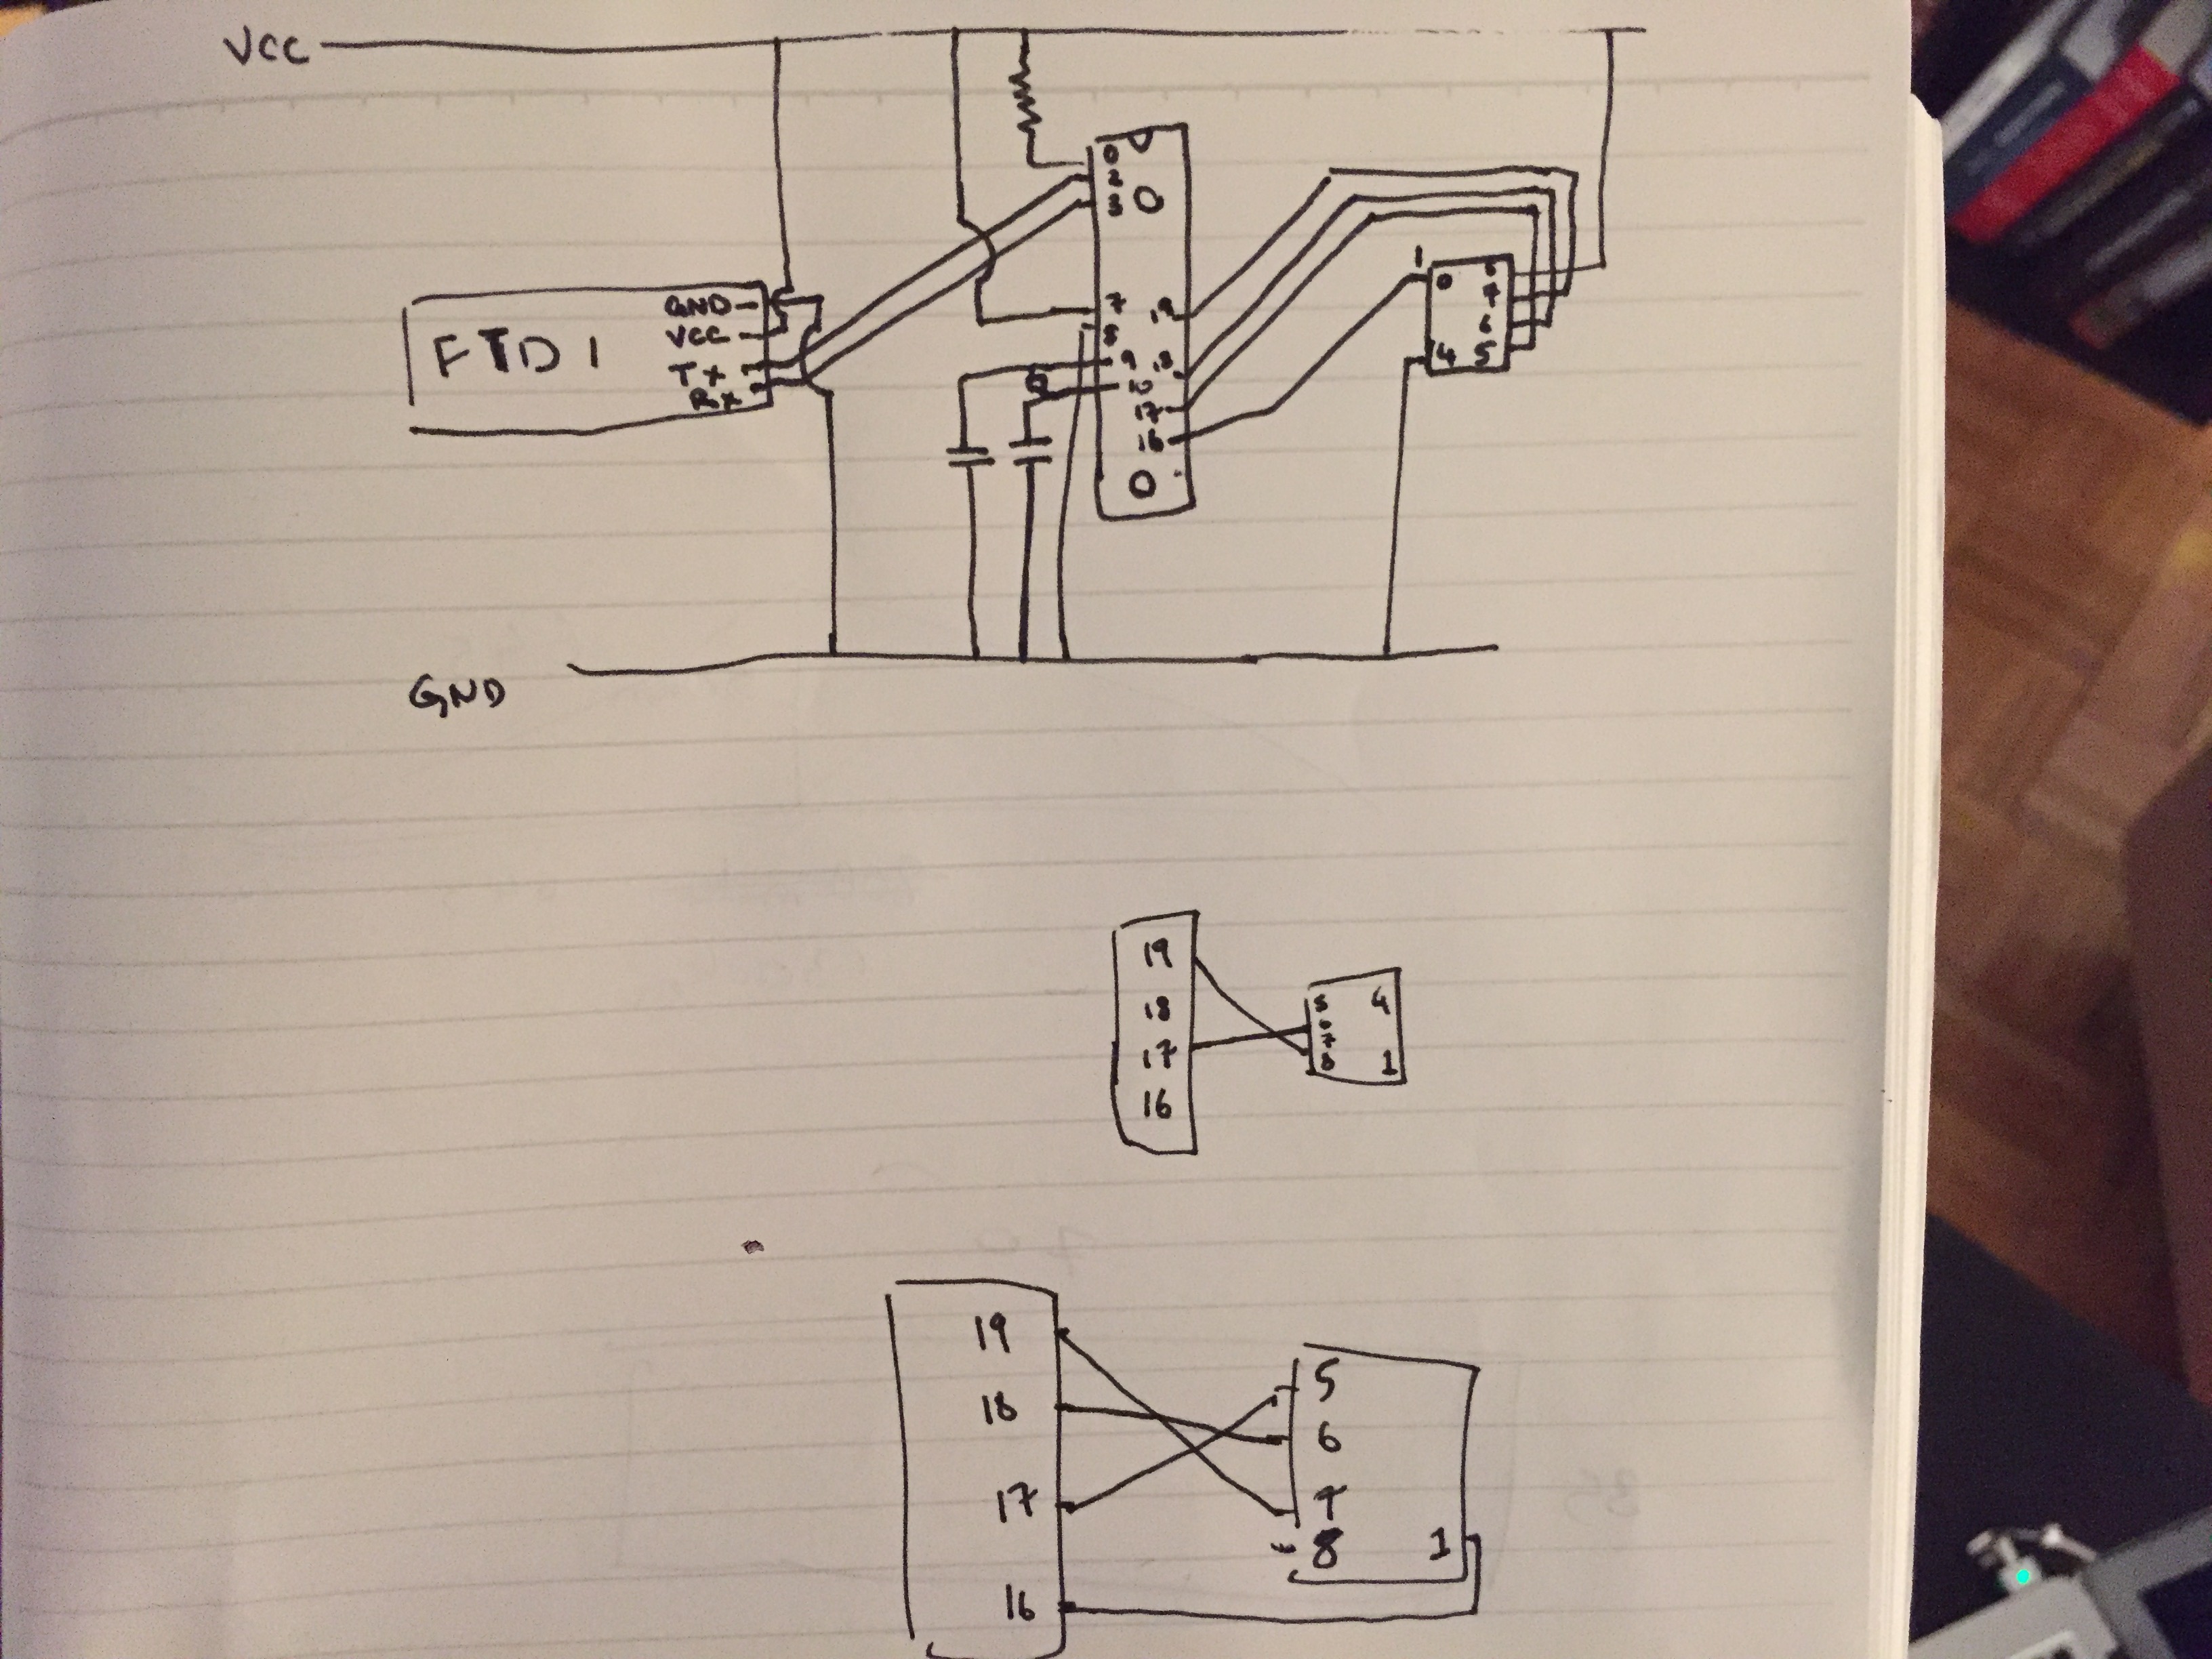 VCC
0
2
3
0
FTDI
GND
VCC
Tx
Rx
7
8
9
10
19
18
17
16
0
1
0
8
7
6
4 5
GND
19
18
17
16
5 4
6
7
8 1
19
18
17
16
5
6
7
8 1